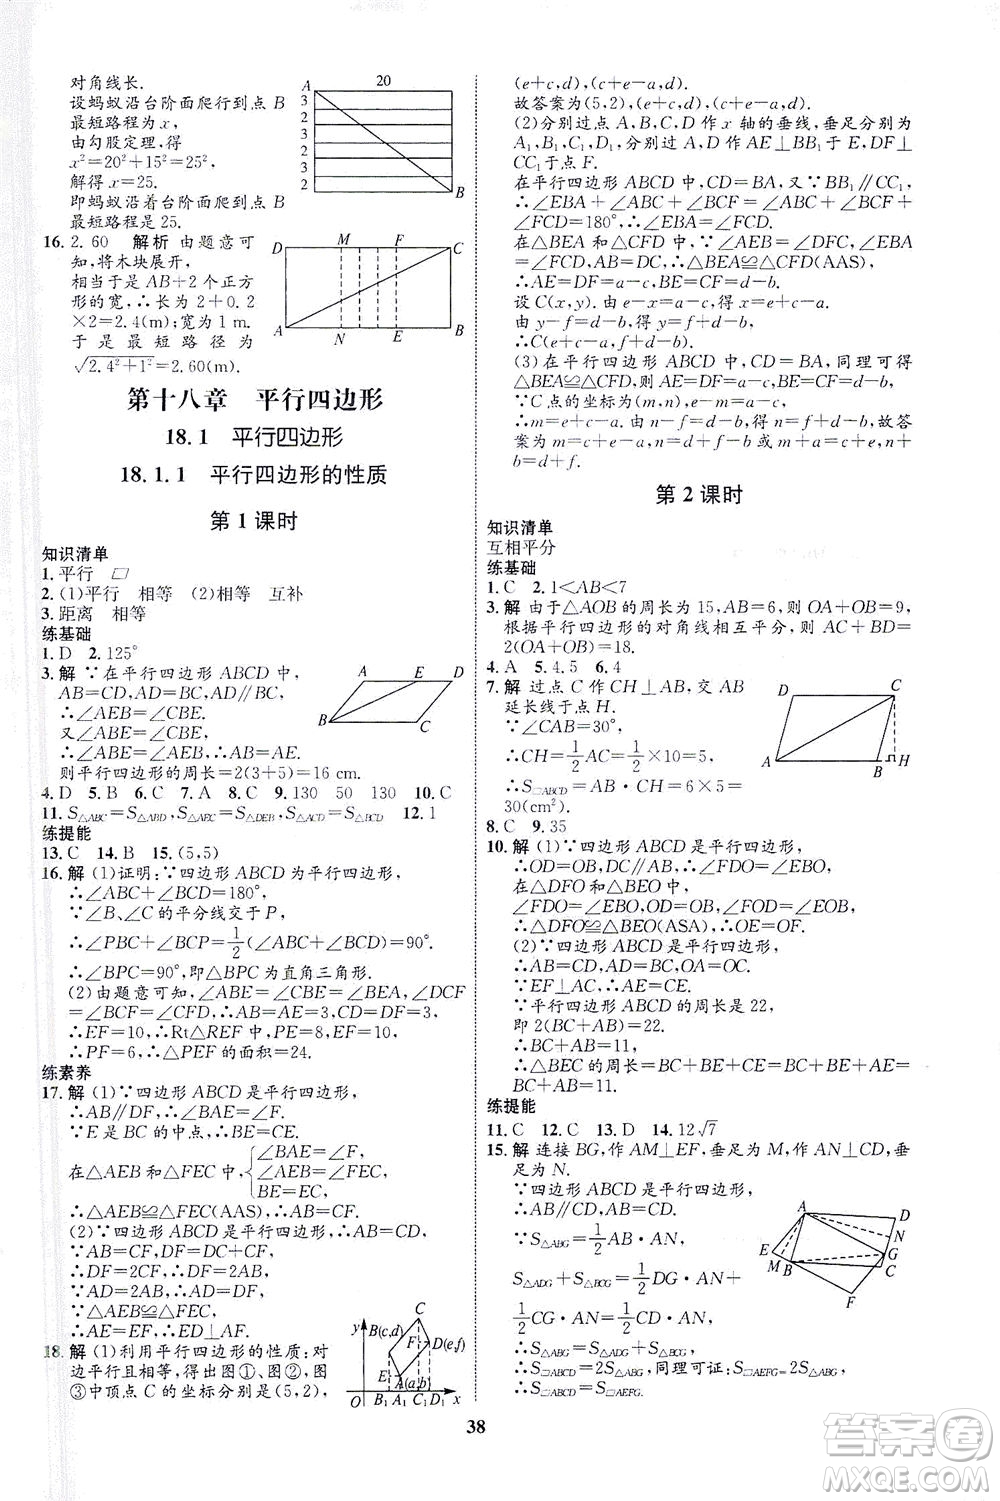 对角线长.
设蚂蚁沿台阶面爬行到点 B
最短路程为 x,
由勾股定理,得
x²=20²+15²=25²,
解得 x=25.
即蚂蚁沿着台阶面爬行到点 B
最短路程是 25.
A 20
2
3
2
3
2
3
B
16. 2.60 解析 由题意可
知,将木块展开,
相当于是 AB+2 个正方
形的宽,∴长为 2+0.2
×2=2.4(m);宽为 1 m.
于是最短路径为
√2.4²+1²=2.60(m).
D M F C
A N E B
第十八章 平行四边形
18.1 平行四边形
18.1.1 平行四边形的性质
第 1 课时
知识清单
1. 平行 ▱
2. (1)平行 相等 (2)相等 互补
3. 距离 相等
练基础
1. D 2. 125°
3. 解 ∵在平行四边形 ABCD 中,
AB=CD,AD=BC,AD∥BC,
∴∠AEB=∠CBE.
又∠ABE=∠CBE,
∴∠ABE=∠AEB,∴AB=AE.
则平行四边形的周长=2(3+5)=16 cm.
A E D
B C
4. D 5. B 6. C 7. A 8. C 9. 130 50 130 10. C
11. S△ABC=S△ABD,S△AEC=S△DEB,S△ACD=S△BDC 12. 1
练提能
13. C 14. B 15. (5,5)
16. 解 (1)证明:∵四边形 ABCD 为平行四边形,
∴∠ABC+∠BCD=180°,
∵∠B、∠C 的平分线交于 P,
∴∠PBC+∠BCP=1/2(∠ABC+∠BCD)=90°.
∴∠BPC=90°,即△BPC 为直角三角形.
(2)由题意可知,∠ABE=∠CBE=∠BEA,∠DCF
=∠BCF=∠CFD,∴AE=AB=3,CD=DF=3,
∴EF=10,∴Rt△REF 中,PE=8,EF=10,
∴PF=6,∴△PEF 的面积=24.
练素养
17. 解 (1)∵四边形 ABCD 是平行四边形,
∴AB∥DF,∴∠BAE=∠F,
∵E 是 BC 的中点,∴BE=CE,
在△AEB 和△FEC 中, { ∠BAE=∠F,
∠AEB=∠FEC,
BE=EC,
∴△AEB≌△FEC(AAS),∴AB=CF.
(2)∵四边形 ABCD 是平行四边形,∴AB=CD,
∵AB=CF,DF=DC+CF,
∴DF=2CF,∴DF=2AB,
∵AD=2AB,∴AD=DF,
∵△AEB≌△FEC,
∴AE=EF,∴ED⊥AF.
18. 解 (1)利用平行四边形的性质:对
边平行且相等,得出图①,图②,图
③中顶点 C 的坐标分别是(5,2),
y C
B(c,d)
F D(e,f)
E A(a,b)
O B₁ A₁ C₁ D₁ x
(e+c,d),(c+e-a,d).
故答案为(5,2),(e+c,d),(c+e-a,d).
(2)分别过点 A,B,C,D 作 x 轴的垂线,垂足分别为
A₁,B₁,C₁,D₁,分别过 A,D 作 AE⊥BB₁ 于 E,DF⊥
CC₁于点 F.
在平行四边形 ABCD 中,CD=BA,又∵BB₁∥CC₁,
∴∠EBA+∠ABC+∠BCF=∠ABC+∠BCF+
∠FCD=180°,∴∠EBA=∠FCD.
在△BEA 和△CFD 中,∠AEB=∠DFC,∠EBA
=∠FCD,AB=CD,∴△BEA≌△CFD(AAS),
∴AE=DF=a-c,BE=CF=d-b.
设 C(x,y).由 e-x=a-c,得 x=e+c-a.
由 y-f=d-b,得 y=f+d-b,
∴C(e+c-a,f+d-b).
(3)在平行四边形 ABCD 中,CD=BA,同理可得
△BEA≌△CFD,则 AE=DF=a-c,BE=CF=d-b.
∵C 点坐标为(m,n),e-m=a-c,
∴m=e+c-a.由 n-f=d-b,得出 n=f+d-b,故答
案为:m=e+c-a,n=f+d-b 或 m+a=e+c,n+b
=d+f.
第 2 课时
知识清单
互相平分
练基础
1. C 2. 1<AB<7
3. 解 由于△AOB 的周长为 15,AB=6,则 OA+OB=9,
根据平行四边形的对角线相互平分,则 AC+BD=
2(OA+OB)=18.
4. A 5. 4.5 6. 4
7. 解 过点 C 作 CH⊥AB,交 AB
延长线于点 H.
∵∠CAB=30°,
∴CH=1/2AC=1/2×10=5.
∴S▱ABCD=AB·CH=6×5=
30(cm²).
D C
A B H
8. C 9. 35
10. 解 (1)∵四边形 ABCD 是平行四边形,
∴OD=OB,DC∥AB,∴∠FDO=∠EBO.
在△DFO 和△BEO 中,
∠FDO=∠EBO,OD=OB,∠FOD=∠EOB,
∴△DFO≌△BEO(ASA),∴OE=OF.
(2)∵四边形 ABCD 是平行四边形,
∴AB=CD,AD=BC,OA=OC.
∵EF⊥AC,∴AE=CE.
∵平行四边形 ABCD 的周长是 22,
即 2(BC+AB)=22.
∴BC+AB=11,
∴△BEC 的周长=BC+BE+CE=BC+BE+AE=
BC+AB=11.
练提能
11. C 12. C 13. D 14. 12√7
15. 解 连接 BG,作 AM⊥EF,垂足为 M,作 AN⊥CD,垂
足为 N.
∵四边形 ABCD 是平行四边形,
∴AB∥CD,AB=CD.
∵S△ABG=1/2AB·AN=1/2CD·AN,
S△ADG+S△BCG=1/2DG·AN+
1/2CG·AN=1/2CD·AN,
∴S△ABG=S△ADG+S△BCG
∴S▱ABCD=2S△ABG,同理可证:S▱AEFG=2S△ABG,
∴S▱ABCD=S▱AEFG.
A D
N
E G
M B C
F
38
答案圈
MXQE.COM